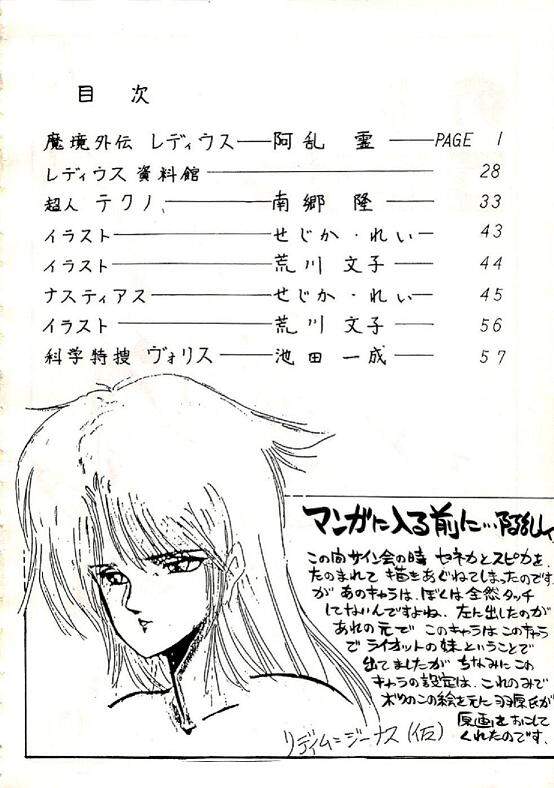 目次
魔境外伝 レディウス——阿乱 霊——PAGE 1
レディウス資料館——28
超人 テクノ——南郷 隆——33
イラスト——せじか・れい—43
イラスト——荒川 文子——44
ナスティアス——せじか・れい—45
イラスト——荒川 文子——56
科学特捜 ヴォリス——池田 一成——57
マンガに入る前に…阿乱
この間サイン会の時 セネカとスピカを、
たのまれて 描きあぐねてしまったのです
が あのキャラは、ぼくは全然タッチ
してないんですよね、左に出したのが
あれの元で このキャラは このキャラ
で ライオットの妹ということで
出てましたが ちなみにこの
キャラの設定は、これのみで
ボクのこの絵を元に 羽原氏が
原画をおこして
くれたのです。
リディム=ジーナス(仮)